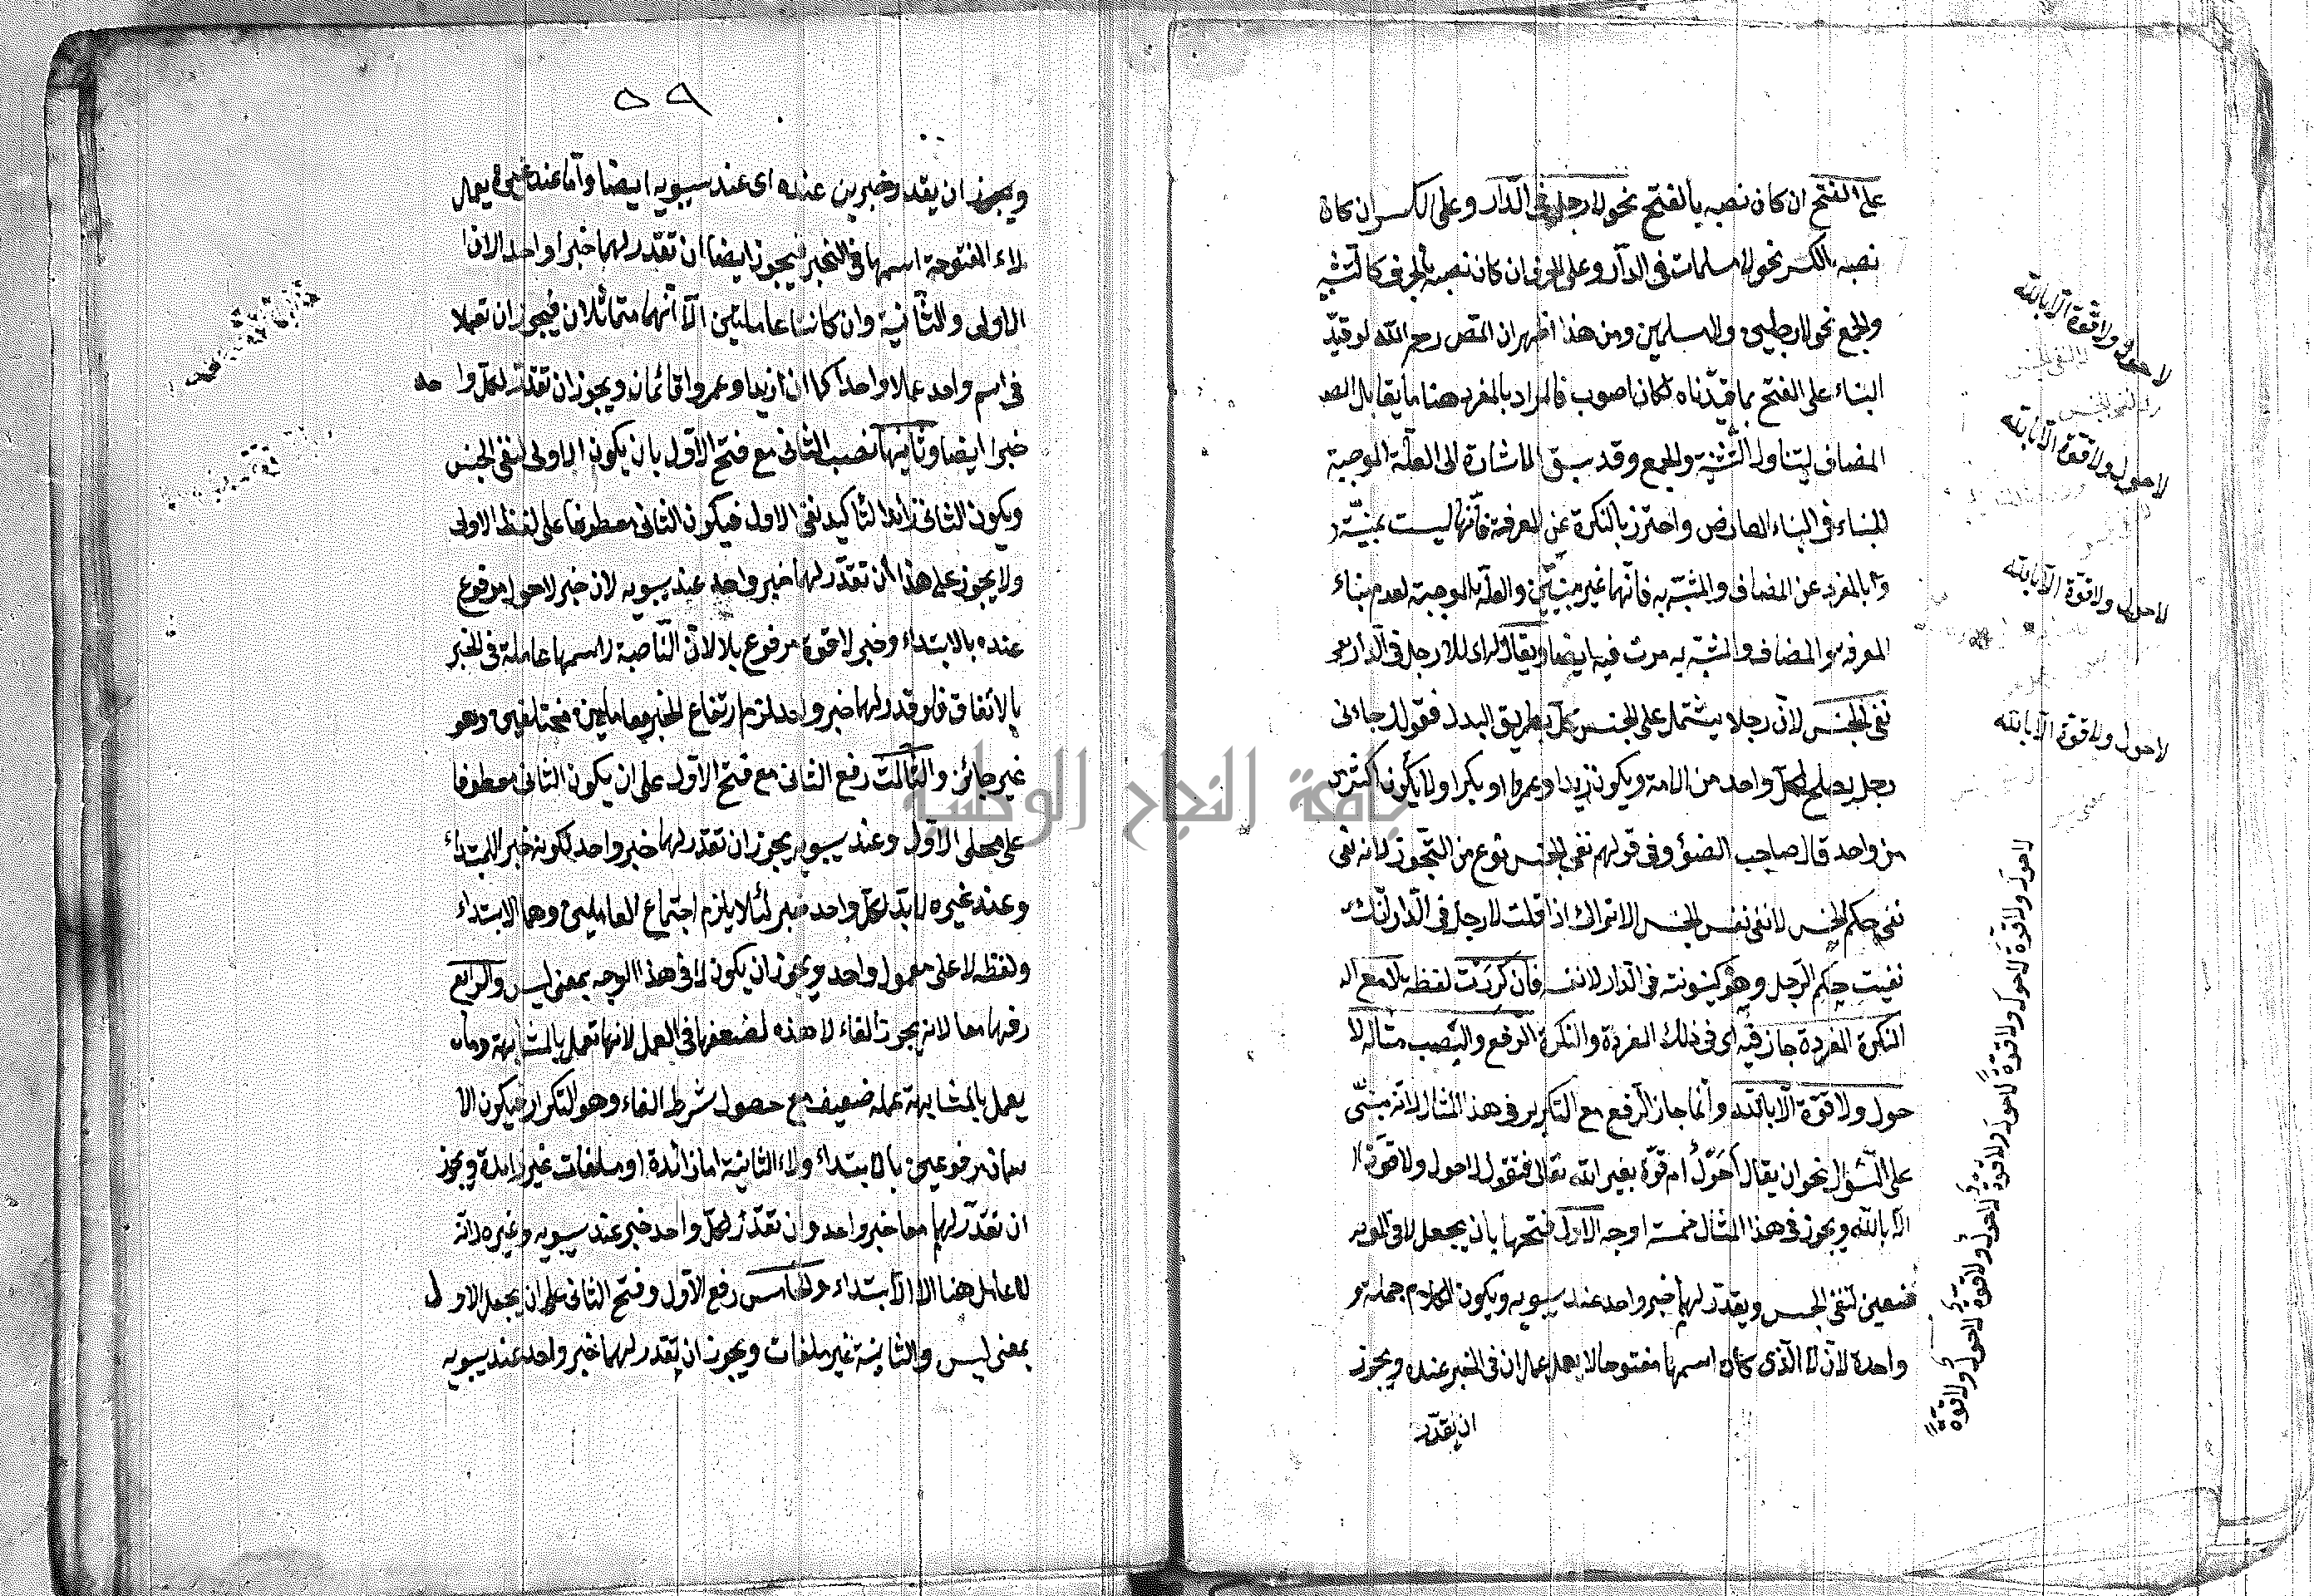 على الفتح ان كان نصبه بالفتح نحو لا رجل في الدار وعلى الكسر ان كان
نصبه بالكسر نحو لا مسلمات في الدار وعلى الحرف ان كان نصبه بالحرف كالتثنية
والجمع نحو لا رجلين ولا مسلمين ومن هذا ظهر ان المص رحم الله لو قيد
البناء على الفتح بما قيدناه لكان اصوب فالمراد بالمفرد هنا ما يقابل
المضاف ليتناول التثنية والجمع وقد سبق الاشارة الى العلة الموجبة
للبناء في البناء العارض واحترز بالنكرة عن المعرفة فانها ليست بمبنية
وبالمفرد عن المضاف والمشبه به فانهما غير مبنيين والعلة الموجبة لعدم بناء
المعرفة والمضاف والمشبه به مرت فيه ايضا ويقال لهذا للا رجل في الدار
نفي الجنس لان رجلا يشتمل على الجنس كل بطريق البدل فقولك جاءني
رجل يصلح لكل واحد من الامة ويكون زيدا وعمروا وبكرا ولا يكون اكثر من
من واحد قال صاحب الضوء وفي قولهم نفي الجنس نوع من التجوز لانه نفى
نفي حكم الجنس لا نفي نفس الجنس الا تراك اذا قلت لا رجل في الدار لانك
نفيت حكم الرجل وهو كينونته في الدار لا نفسه فان كررت لفظة لا مع
النكرة المفردة جاز فيه اي في ذلك المفردة والنكرة الرفع والنصب مثاله لا
حول ولا قوة الا بالله وانما جاز الرفع مع التكرير في هذا المثال لانه مبني
على السؤال نحو ان يقال أحول أم قوة بغير الله تعالى فتقول لا حول ولا قوة
الا بالله ويجوز في هذا المثال خمسة اوجه الاول فتحهما بان يجعل لا في
لنفي الجنس ويقدر لهما خبر واحد عند سيبويه ويكون الكلام جملة
واحدة لان لا الذي كان اسمها مفتوحا لا يعمل عمل ان في الخبر عنده ويجوز
ان يقدر
لا حول ولا قوة الا بالله
لا حول ولا قوة الا بالله
لا حول ولا قوة الا بالله
لا حول ولا قوة الا بالله
لا حول ولا قوة لا حول ولا قوة لا حول ولا قوة لا حول ولا قوة لا حول ولا قوة
٥٩
ويجوز ان يقدر خبرين عنده اى عند سيبويه ايضا واما عند غيره يعمل
لاء المفتوحة اسمها في الخبر فيجوز ايضا ان تقدر لهما خبرا واحدا لان
الاولى والثانية وان كانتا عاملتين الا انهما متماثلان فيجوز ان تعملا
في اسم واحد عملا واحدا كما ان زيدا وعمروا قائمان ويجوز ان تقدر لكل واحد
خبرا ايضا وثانيها نصب الثاني مع فتح الاول بان يكون الاولى لنفي الجنس
ويكون الثاني زائدا لتاكيد نفي الاول فيكون الثاني معطوفا على لفظ الاولى
ولا يجوز على هذا ان تقدر لهما خبر واحد عند سيبويه لان خبر لا حول مرفوع
عنده بالابتداء وخبر لا قوة مرفوع بلا لان الناصبة لاسمها عاملة في الخبر
بالاتفاق فلو قدر لهما خبر واحد لزم ارتفاع الخبر بعاملين مختلفين وهو
غير جائز والثالث رفع الثاني مع فتح الاول على ان يكون الثاني معطوفا
على محل الاول وعند سيبويه يجوز ان تقدر لهما خبر واحد لكونه خبر المبتداء
وعند غيره لا بد لكل واحد خبر لئلا يلزم اجتماع العاملين وهما الابتداء
ولفظه لا على معمول واحد ويجوز ان يكون لا في هذا الوجه بمعنى ليس والرابع
رفعهما معا لانه يجوز الغاء لا هذه لضعفها في العمل لانها تعمل بالمشابهة وما
يعمل بالمشابهة عمله ضعيف مع حصول شرط الغاء وهو التكرار فيكون
مرفوعين بالابتداء ولاء الثانية اما زائدة او ملغات غير زايدة ويجوز
ان تقدر لهما معا خبر واحد وان تقدر لكل واحد خبر عند سيبويه وغيره لانه
لا عامل هنا الا الابتداء والخامس رفع الاول وفتح الثاني على ان يجعل الاول
بمعنى ليس والثانية غير ملغات ويجوز ان يقدر لهما خبر واحد عند سيبويه
جامعة النجاح الوطنية